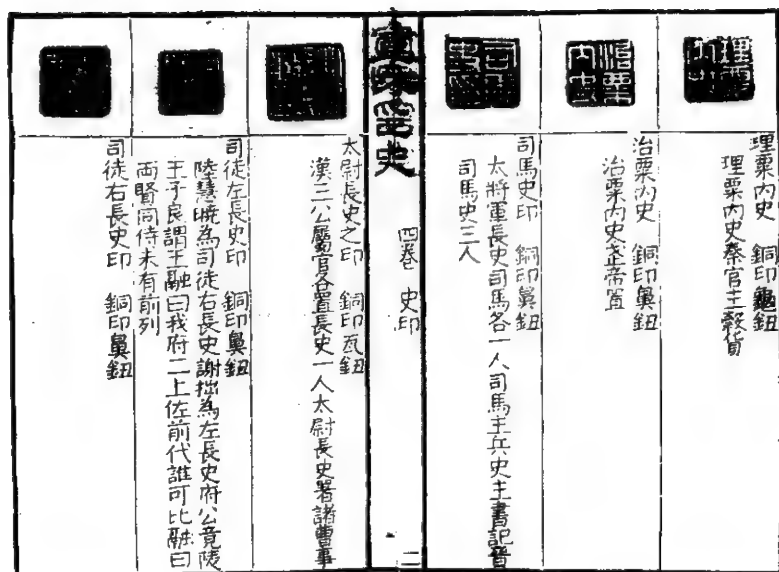 理粟內史
理粟內史　銅印龜鈕
理粟內史秦官主穀貨
治粟內史
治粟內史　銅印鼻鈕
治粟內史
司馬史印　銅印鼻鈕
太將軍長史司馬各一人司馬主兵史主書記晉
司馬史三人
四卷　史印
二
太尉長史之印　銅印瓦鈕
漢三公屬官各置長史一人太尉長史署諸曹事
司徒左長史印　銅印鼻鈕
陸慧曉為司徒右長史謝朏為左長史府公竟陵
王子良謂王融曰我府二上佐前代誰可比融曰
兩賢同侍未有前列
司徒右長史印　銅印鼻鈕